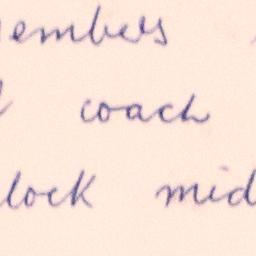 embers
coach
lock mid